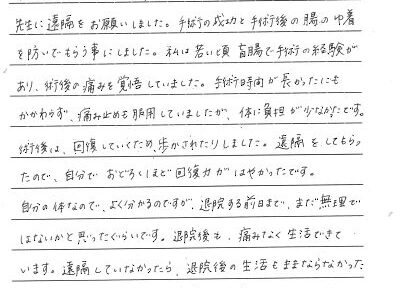 先生に遠隔をお願いしました。手術の成功と手術後の腸の中着
を防いでもらう事にしました。私は若い頃盲腸で手術の経験が
あり、術後の痛みを覚悟していました。手術時間が長かったにも
かかわらず、痛み止めも服用していましたが、体に負担が少なかったです。
術後は、回復していくため、歩かされたりしました。遠隔をしてもらっ
たので、自分でおどろくほど回復力がはやかったです。
自分の体なので、よく分かるのですが、退院する前日まで、まだ無理で
はないかと思ったぐらいです。退院後も、痛みなく生活できて
います。遠隔していなかったら、退院後の生活もままならなかった